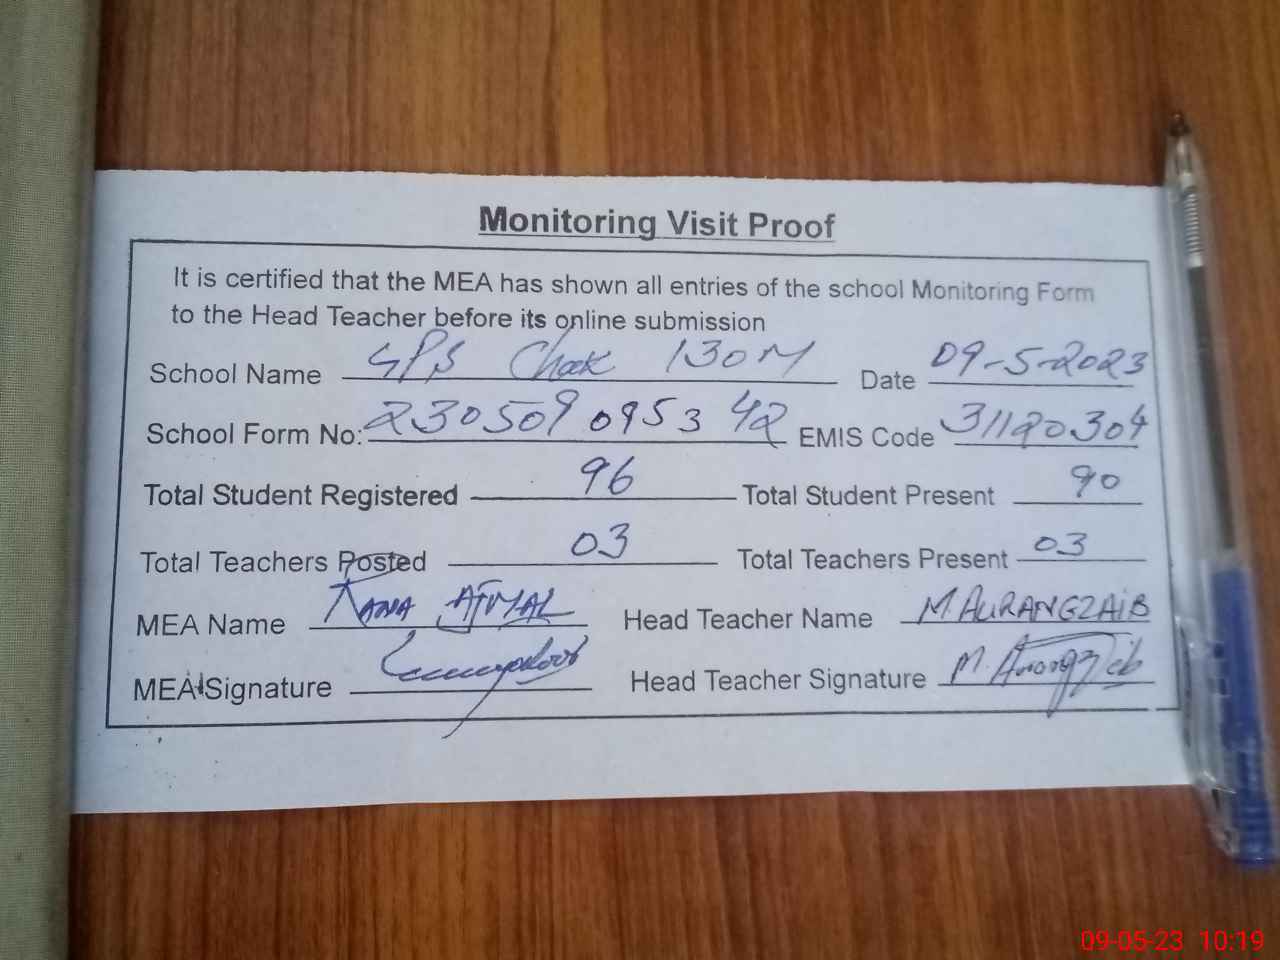 Monitoring Visit Proof
It is certified that the MEA has shown all entries of the school Monitoring Form
to the Head Teacher before its online submission
School Name GPS Chak 130M Date 09-5-2023
School Form No: 230509095342 EMIS Code 31120304
Total Student Registered 96 Total Student Present 90
Total Teachers Posted 03 Total Teachers Present 03
MEA Name RANA AJMAL Head Teacher Name M.AURANGZAIB
MEA Signature Head Teacher Signature M. Aurangzeb
09-05-23 10:19